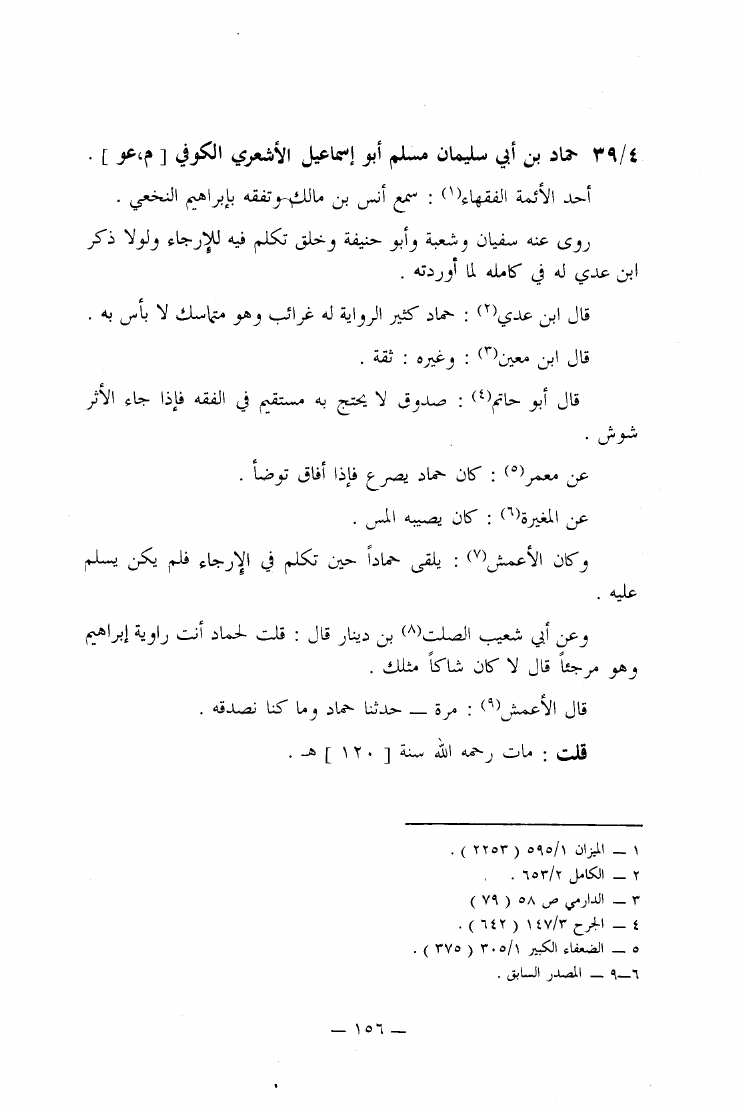 ٣٩/٤ حماد بن أبي سليمان مسلم أبو إسماعيل الأشعري الكوفي [ م،عو ] .
أحد الأئمة الفقهاء(١) : سمع أنس بن مالك وتفقه بإبراهيم النخعي .
روى عنه سفيان وشعبة وأبو حنيفة وخلق تكلم فيه للإرجاء ولولا ذكر
ابن عدي له في كامله لما أوردته .
قال ابن عدي(٢) : حماد كثير الرواية له غرائب وهو متماسك لا بأس به .
قال ابن معين(٣) : وغيره : ثقة .
قال أبو حاتم(٤) : صدوق لا يحتج به مستقيم في الفقه فإذا جاء الأثر
شوش .
عن معمر(٥) : كان حماد يصرع فإذا أفاق توضأ .
عن المغيرة(٦) : كان يصيبه المس .
وكان الأعمش(٧) : يلقى حماداً حين تكلم في الإرجاء فلم يكن يسلم
عليه .
وعن أبي شعيب الصلت(٨) بن دينار قال : قلت لحماد أنت راوية إبراهيم
وهو مرجئاً قال لا كان شاكاً مثلك .
قال الأعمش(٩) : مرة — حدثنا حماد وما كنا نصدقه .
قلت : مات رحمه الله سنة [ ١٢٠ ] هـ .
١ — الميزان ٥٩٥/١ ( ٢٢٥٣ ) .
٢ — الكامل ٦٥٣/٢ .
٣ — الدارمي ص ٥٨ ( ٧٩ )
٤ — الجرح ١٤٧/٣ ( ٦٤٢ ) .
٥ — الضعفاء الكبير ٣٠٥/١ ( ٣٧٥ ) .
٦—٩ — المصدر السابق .
— ١٥٦ —